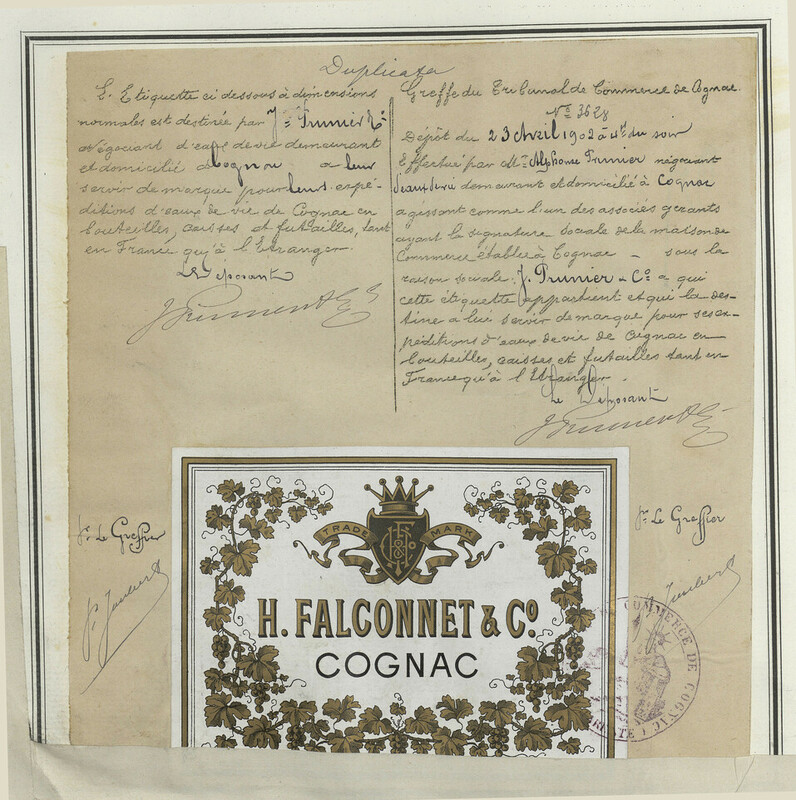 Duplicata
L'Etiquette ci dessous à dimensions
normales est destinée par J. Prunier & Cie
Négociant d'eaux de vie demeurant
et domicilié à Cognac a leur
servir de marque pour leurs expé-
ditions d'eaux de vie de Cognac en
bouteilles, caisses et futailles, tant
en France qu'à l'Etranger.
Le Déposant
J Prunier & Cie
Greffe du Tribunal de Commerce de Cognac
No 3628
Dépôt du 23 Avril 1902 à 4h du soir
Effectué par Mr Alphonse Prunier négociant
demeurant et domicilié à Cognac
agissant comme l'un des associés gérants
ayant la signature sociale de la maison de
Commerce établie à Cognac - sous la
raison sociale J. Prunier & Co a qui
cette étiquette appartient et qui la des-
tine a lui servir de marque pour ses ex-
péditions d'eaux de vie de Cognac en
bouteilles, caisses et futailles tant en
France qu'à l'Etranger.
Le Déposant
J Prunier & Cie
pr Le Greffier
pr Le Greffier
TRADE MARK
H. FALCONNET & Co.
COGNAC
COMMERCE DE COGNAC